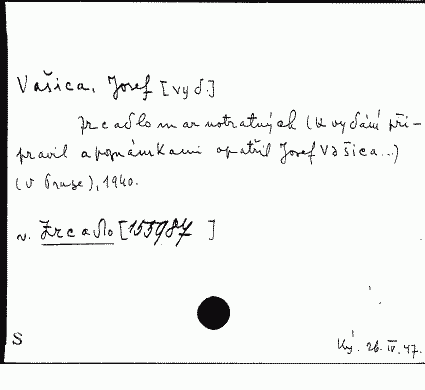 Vašica, Josef [vyd.]
Zrcadlo marnotratných (K vydání při-
pravil a poznámkami opatřil Josef Vašica..)
(V Praze), 1940.
v. Zrcadlo [155987 ]
S
Ký. 26. IV. 47.